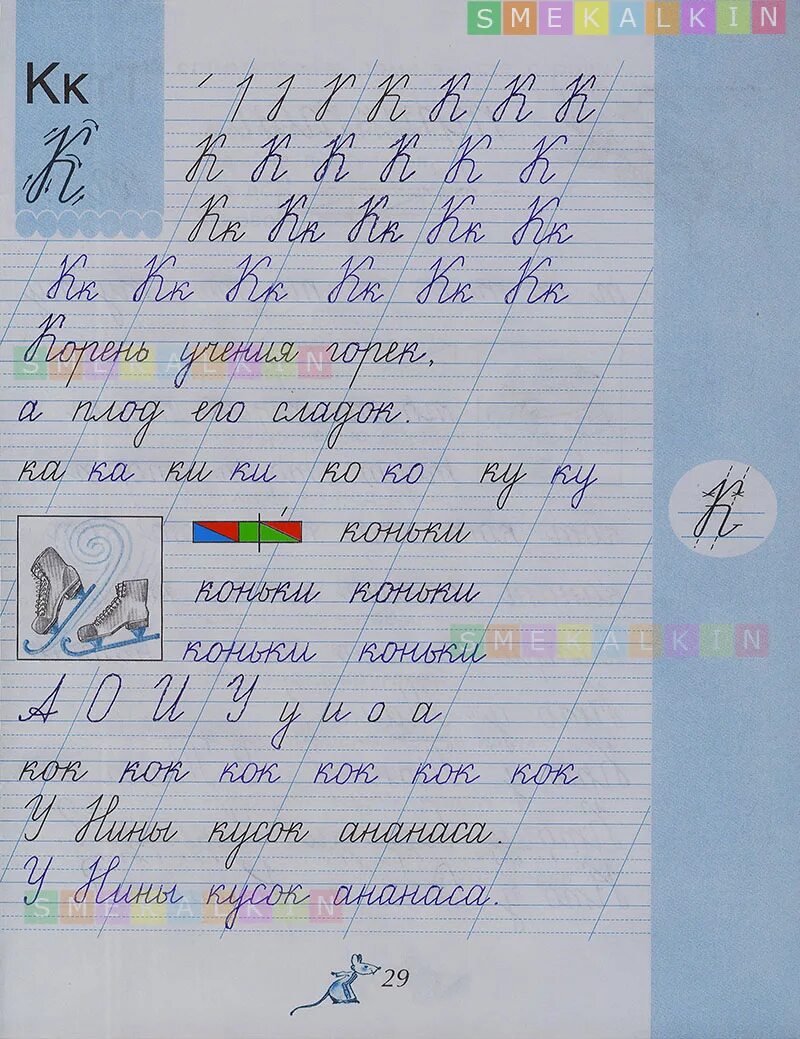 SMEKALKIN
Кк
К
К К К К
К К К К К К
Кк Кк Кк Кк Кк
Кк Кк Кк Кк Кк Кк
Корень учения горек,
SMEKALKIN
а плод его сладок.
ка ка ки ки ко ко ку ку
К
коньки
коньки коньки
SMEKALKIN
коньки коньки
А О И У у и о а
кок кок кок кок кок кок
У Нины кусок ананаса.
У Нины кусок ананаса.
SMEKALKIN
29